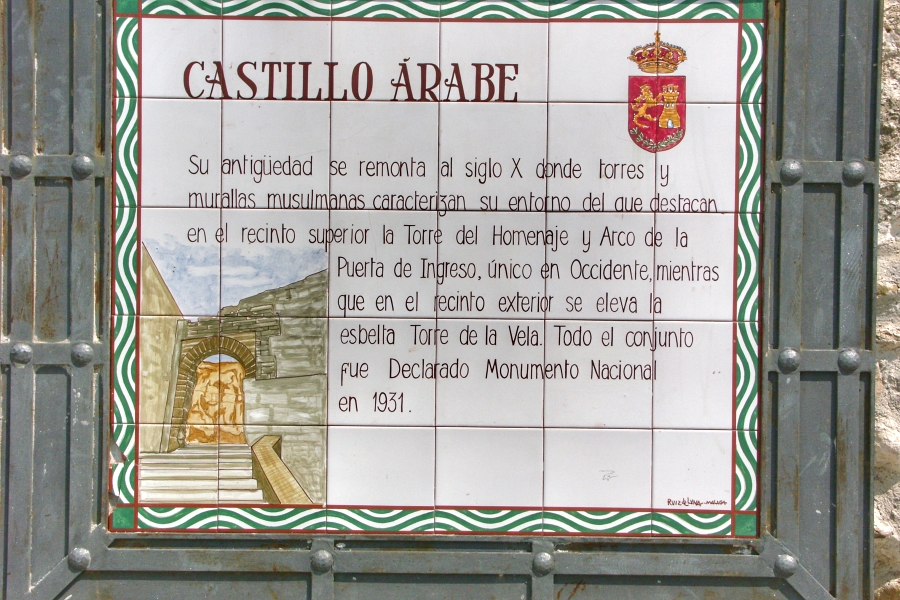 CASTILLO ÁRABE
Su antigüedad se remonta al siglo X donde torres y
murallas musulmanas caracterizan su entorno del que destacan
en el recinto superior la Torre del Homenaje y Arco de la
Puerta de Ingreso, único en Occidente, mientras
que en el recinto exterior se eleva la
esbelta Torre de la Vela. Todo el conjunto
fue Declarado Monumento Nacional
en 1931.